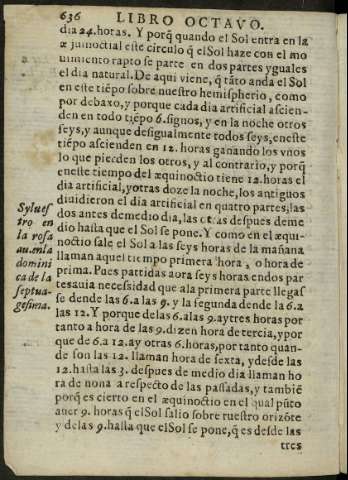 636 LIBRO OCTAVO.
dia 24. horas. Y porq̃ quando el Sol entra en la
æquinoctial este circulo q̃ el Sol haze con el mo
uimiento rapto se parte en dos partes yguales
el dia natural. De aqui viene, q̃ tãto anda el Sol
en este tiẽpo sobre nuestro hemispherio, como
por debaxo, y porque cada dia artificial ascien-
den en todo tiẽpo 6. signos, y en la noche otros
seys, y aunque desigualmente todos seys, eneste
tiẽpo ascienden en 12. horas ganando los vnos
lo que pierden los otros, y al contrario, y porq̃
eneste tiempo del æquinoctio tiene 12. horas el
dia artificial, y otras doze la noche, los antiguos
diuidieron el dia artificial en quatro partes, las
dos antes de medio dia, las otras despues de me
dio hasta que el Sol se pone. Y como en el æqui-
noctio sale el Sol a las seys horas de la mañana
llaman aquel tiempo primera hora, o hora de
prima. Pues partidas aora seys horas en dos par
tes auia necessidad que a la primera parte llegas
se dende las 6. a las 9. y la segunda dende la 6. a
las 12. Y porque de las 6. a las 9. ay tres horas por
tanto a hora de las 9. dizen hora de tercia, y por
que de 6. a 12. ay otras 6. horas, por tanto quan-
do son las 12. llaman hora de sexta, y desde las
12. hasta las 3. despues de medio dia llaman ho
ra de nona a respecto de las passadas, y tambiẽ
porq̃ es cierto en el æquinoctio en el qual pũto
auer 9. horas q̃ el Sol salio sobre nuestro orizõte
y de las 9. hasta que el Sol se pone, q̃ es desde las
tres
Sylues
tro en
la rosa
au. en la
domini
ca de la
septua-
gesima.